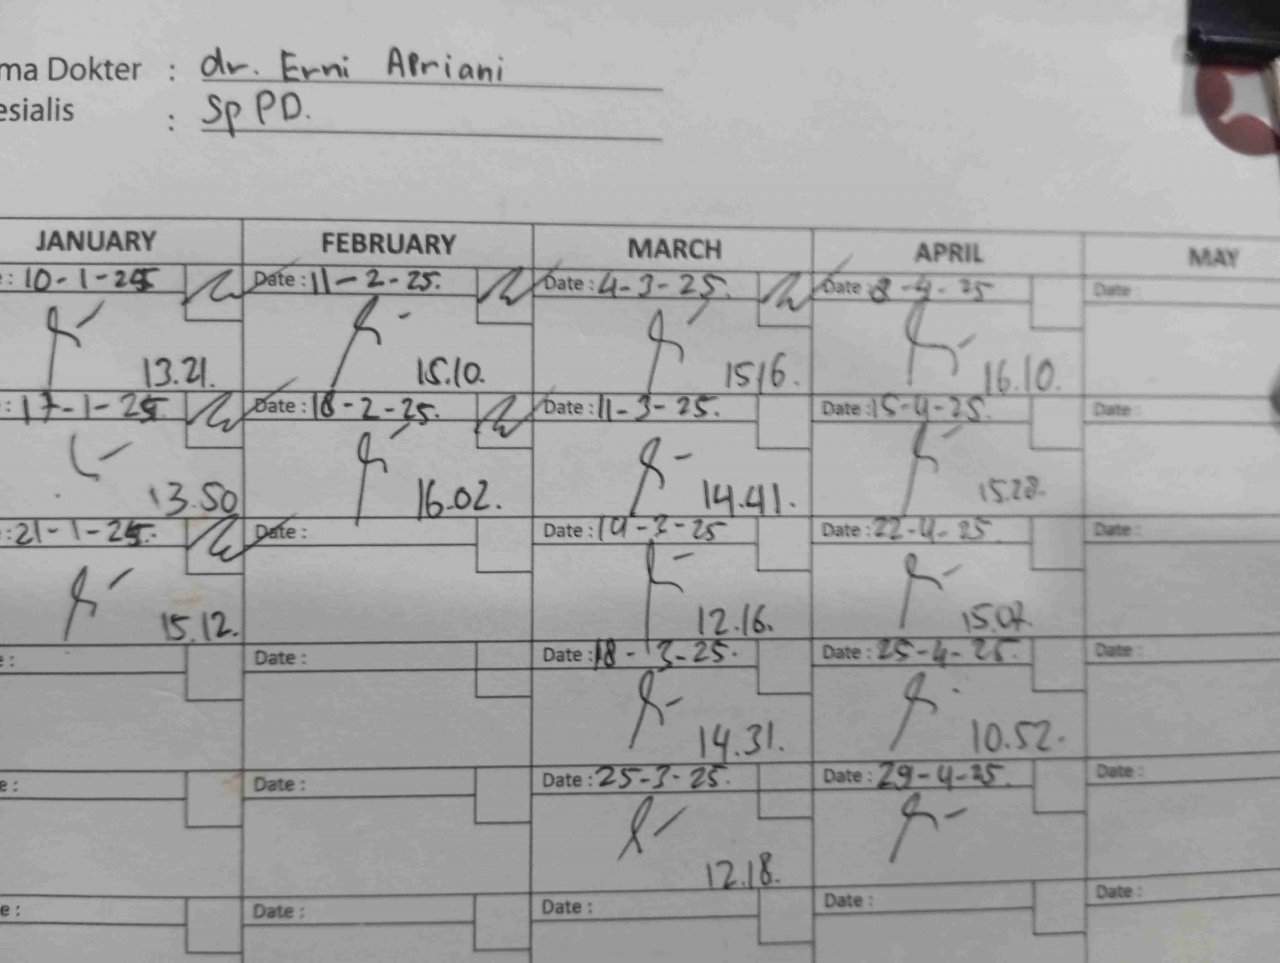 ma Dokter : dr. Erni Apriani
esialis : Sp PD.
JANUARY FEBRUARY MARCH APRIL MAY
e : 10-1-25 Date : 11-2-25. Date : 4-3-25. Date : 8-4-25 Date :
13.21. 15.10. 15.16. 16.10.
e : 17-1-25 Date : 18-2-25. Date : 11-3-25. Date : 15-4-25. Date :
13.50 16.02. 14.41. 15.28.
e : 21-1-25. Date : Date : 14-3-25 Date : 22-4-25. Date :
15.12. 12.16. 15.07.
e : Date : Date : 18-3-25. Date : 25-4-25. Date :
14.31. 10.52.
e : Date : Date : 25-3-25. Date : 29-4-25. Date :
12.18.
e : Date : Date : Date : Date :